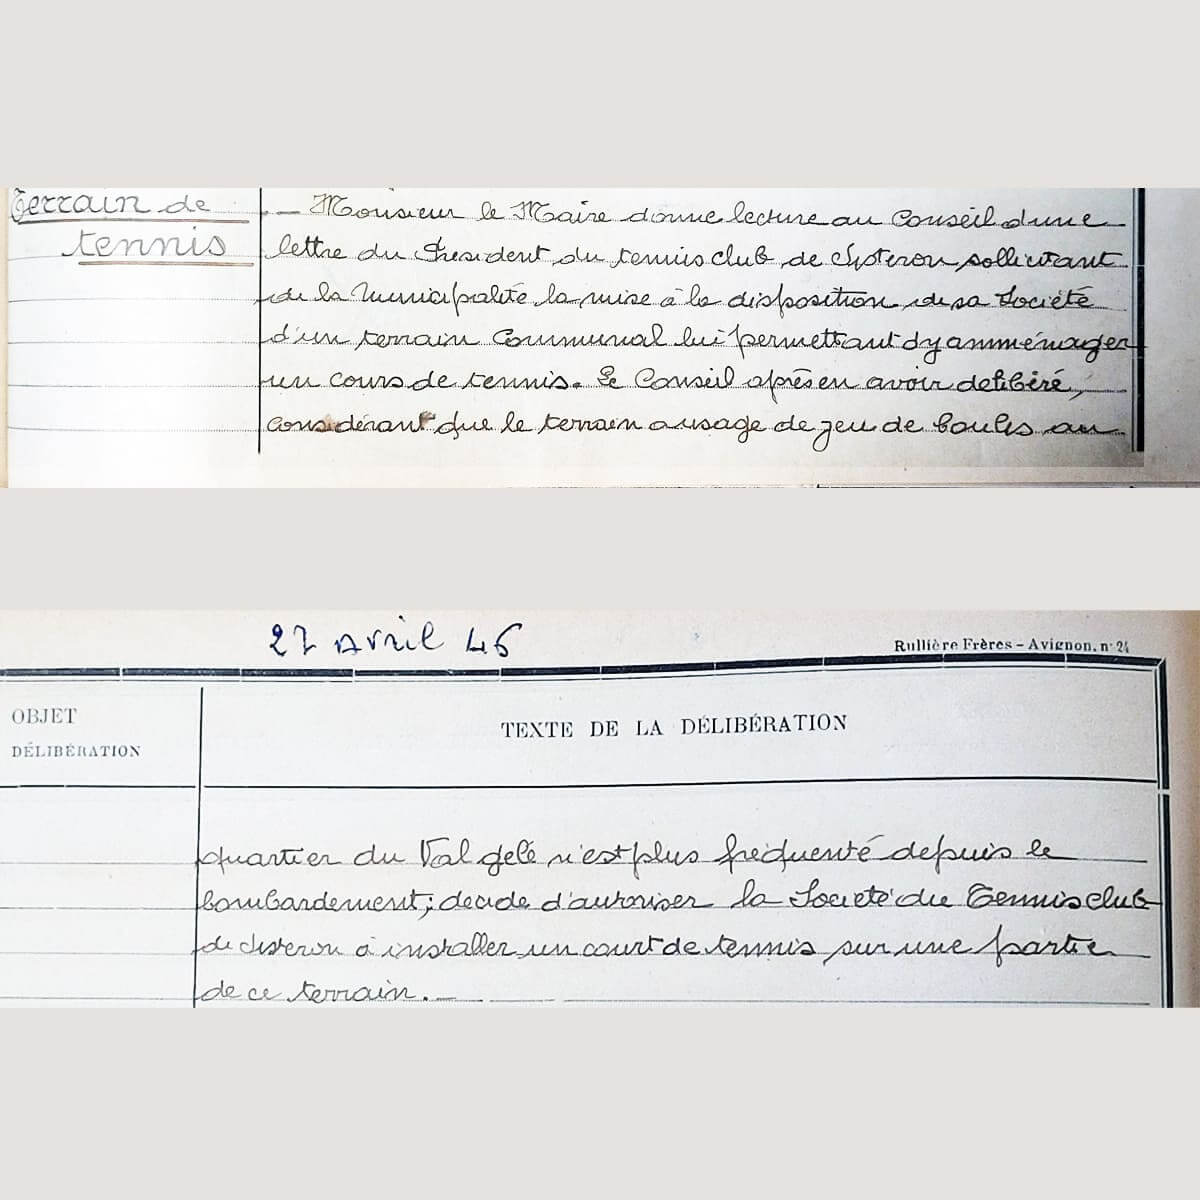 Terrain de
tennis
- Monsieur le Maire donne lecture au Conseil dune
lettre du President du tennis club de Sisteron sollicitant
de la Municipalité la mise à la disposition de sa Société
d'un terrain Communal lui permettant dy amménager
un cours de tennis. Le Conseil après en avoir deliberé,
considérant que le terrain a usage de jeu de boules au
27 Avril 46
Rullière Frères - Avignon. n° 24
OBJET
DÉLIBÉRATION
TEXTE DE LA DÉLIBÉRATION
quartier du Val gelé n'est plus fréquenté depuis le
bombardement; decide d'autoriser la Société du Tennis club
de Sisteron à installer un court de tennis sur une partie
de ce terrain. -